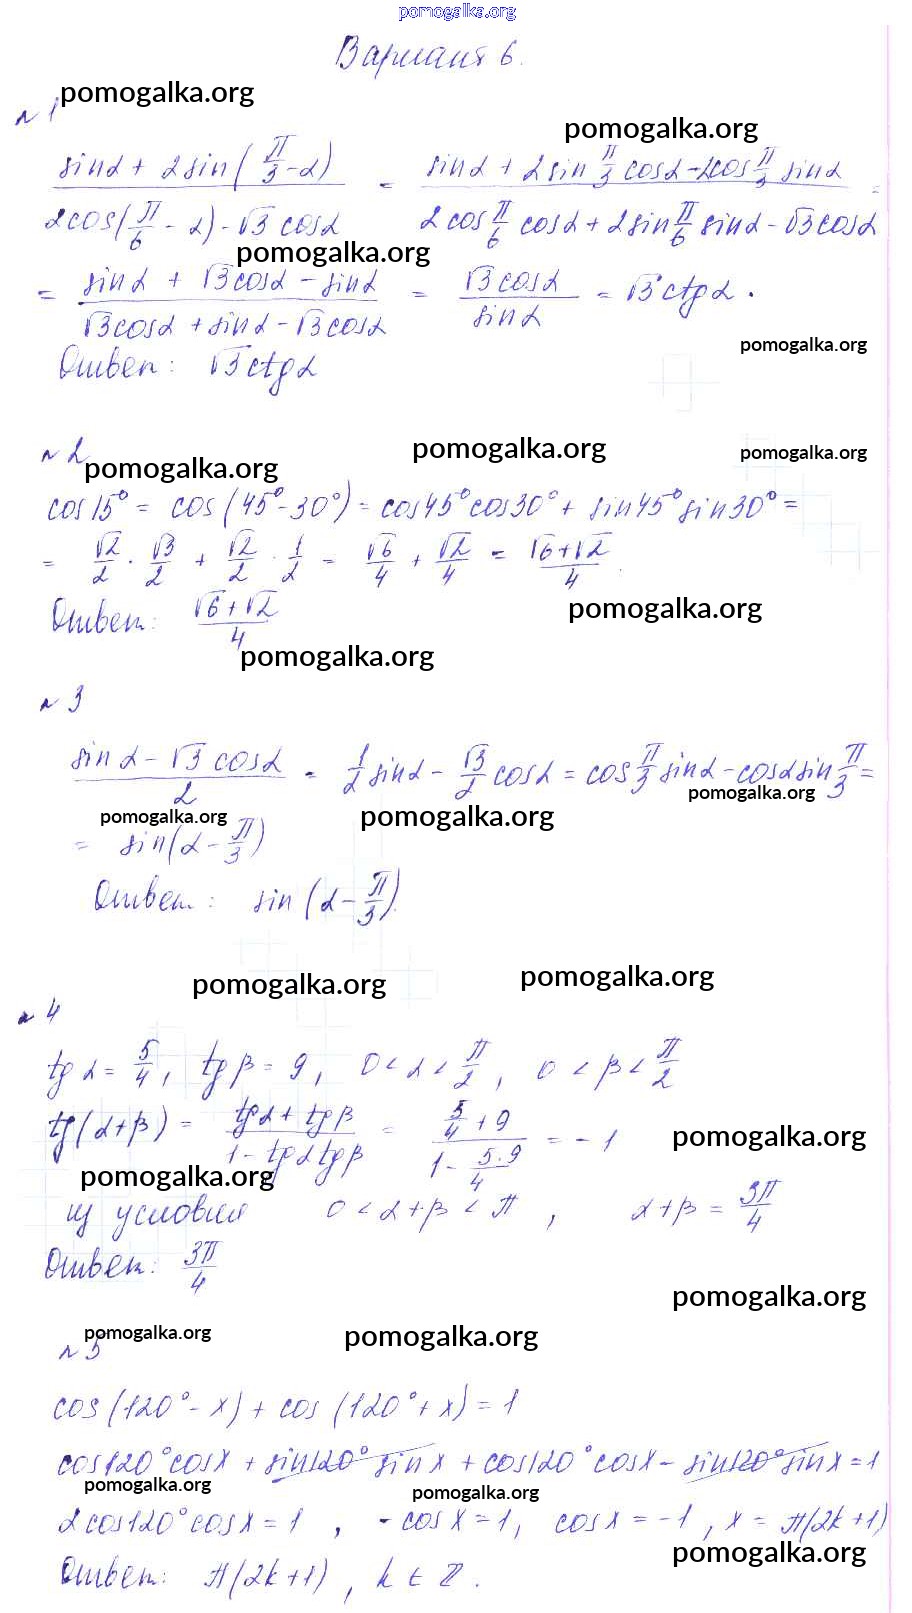 pomogalka.org
Вариант 6.
pomogalka.org
№ 1
pomogalka.org
(sinα + 2sin(π/3 - α)) / (2cos(π/6 - α) - √3 cosα) = (sinα + 2sin π/3 cosα - 2cos π/3 sinα) / (2cos π/6 cosα + 2sin π/6 sinα - √3 cosα) =
pomogalka.org
= (sinα + √3cosα - sinα) / (√3cosα + sinα - √3cosα) = √3cosα / sinα = √3 ctgα.
pomogalka.org
Ответ: √3ctgα
№ 2
pomogalka.org
pomogalka.org
pomogalka.org
cos15° = cos(45°-30°) = cos45°cos30° + sin45°sin30° =
= √2/2 · √3/2 + √2/2 · 1/2 = √6/4 + √2/4 = (√6+√2)/4.
Ответ: (√6+√2)/4
pomogalka.org
pomogalka.org
№ 3
(sinα - √3 cosα)/2 = 1/2 sinα - √3/2 cosα = cos π/3 sinα - cosα sin π/3 =
pomogalka.org
pomogalka.org
pomogalka.org
= sin(α - π/3)
Ответ: sin(α - π/3).
pomogalka.org
pomogalka.org
№ 4
tgα = 5/4, tgβ = 9, 0 < α < π/2, 0 < β < π/2
tg(α+β) = (tgα + tgβ)/(1 - tgαtgβ) = (5/4 + 9)/(1 - 5·9/4) = -1
pomogalka.org
pomogalka.org
из условия 0 < α+β < π, α+β = 3π/4
Ответ: 3π/4
pomogalka.org
pomogalka.org
pomogalka.org
№ 5
cos(120°-x) + cos(120°+x) = 1
cos120°cosx + sin120° sinx + cos120°cosx - sin120°sinx = 1
pomogalka.org
pomogalka.org
2cos120°cosx = 1, -cosx = 1, cosx = -1, x = π(2k+1)
pomogalka.org
Ответ: π(2k+1), k ∈ Z.